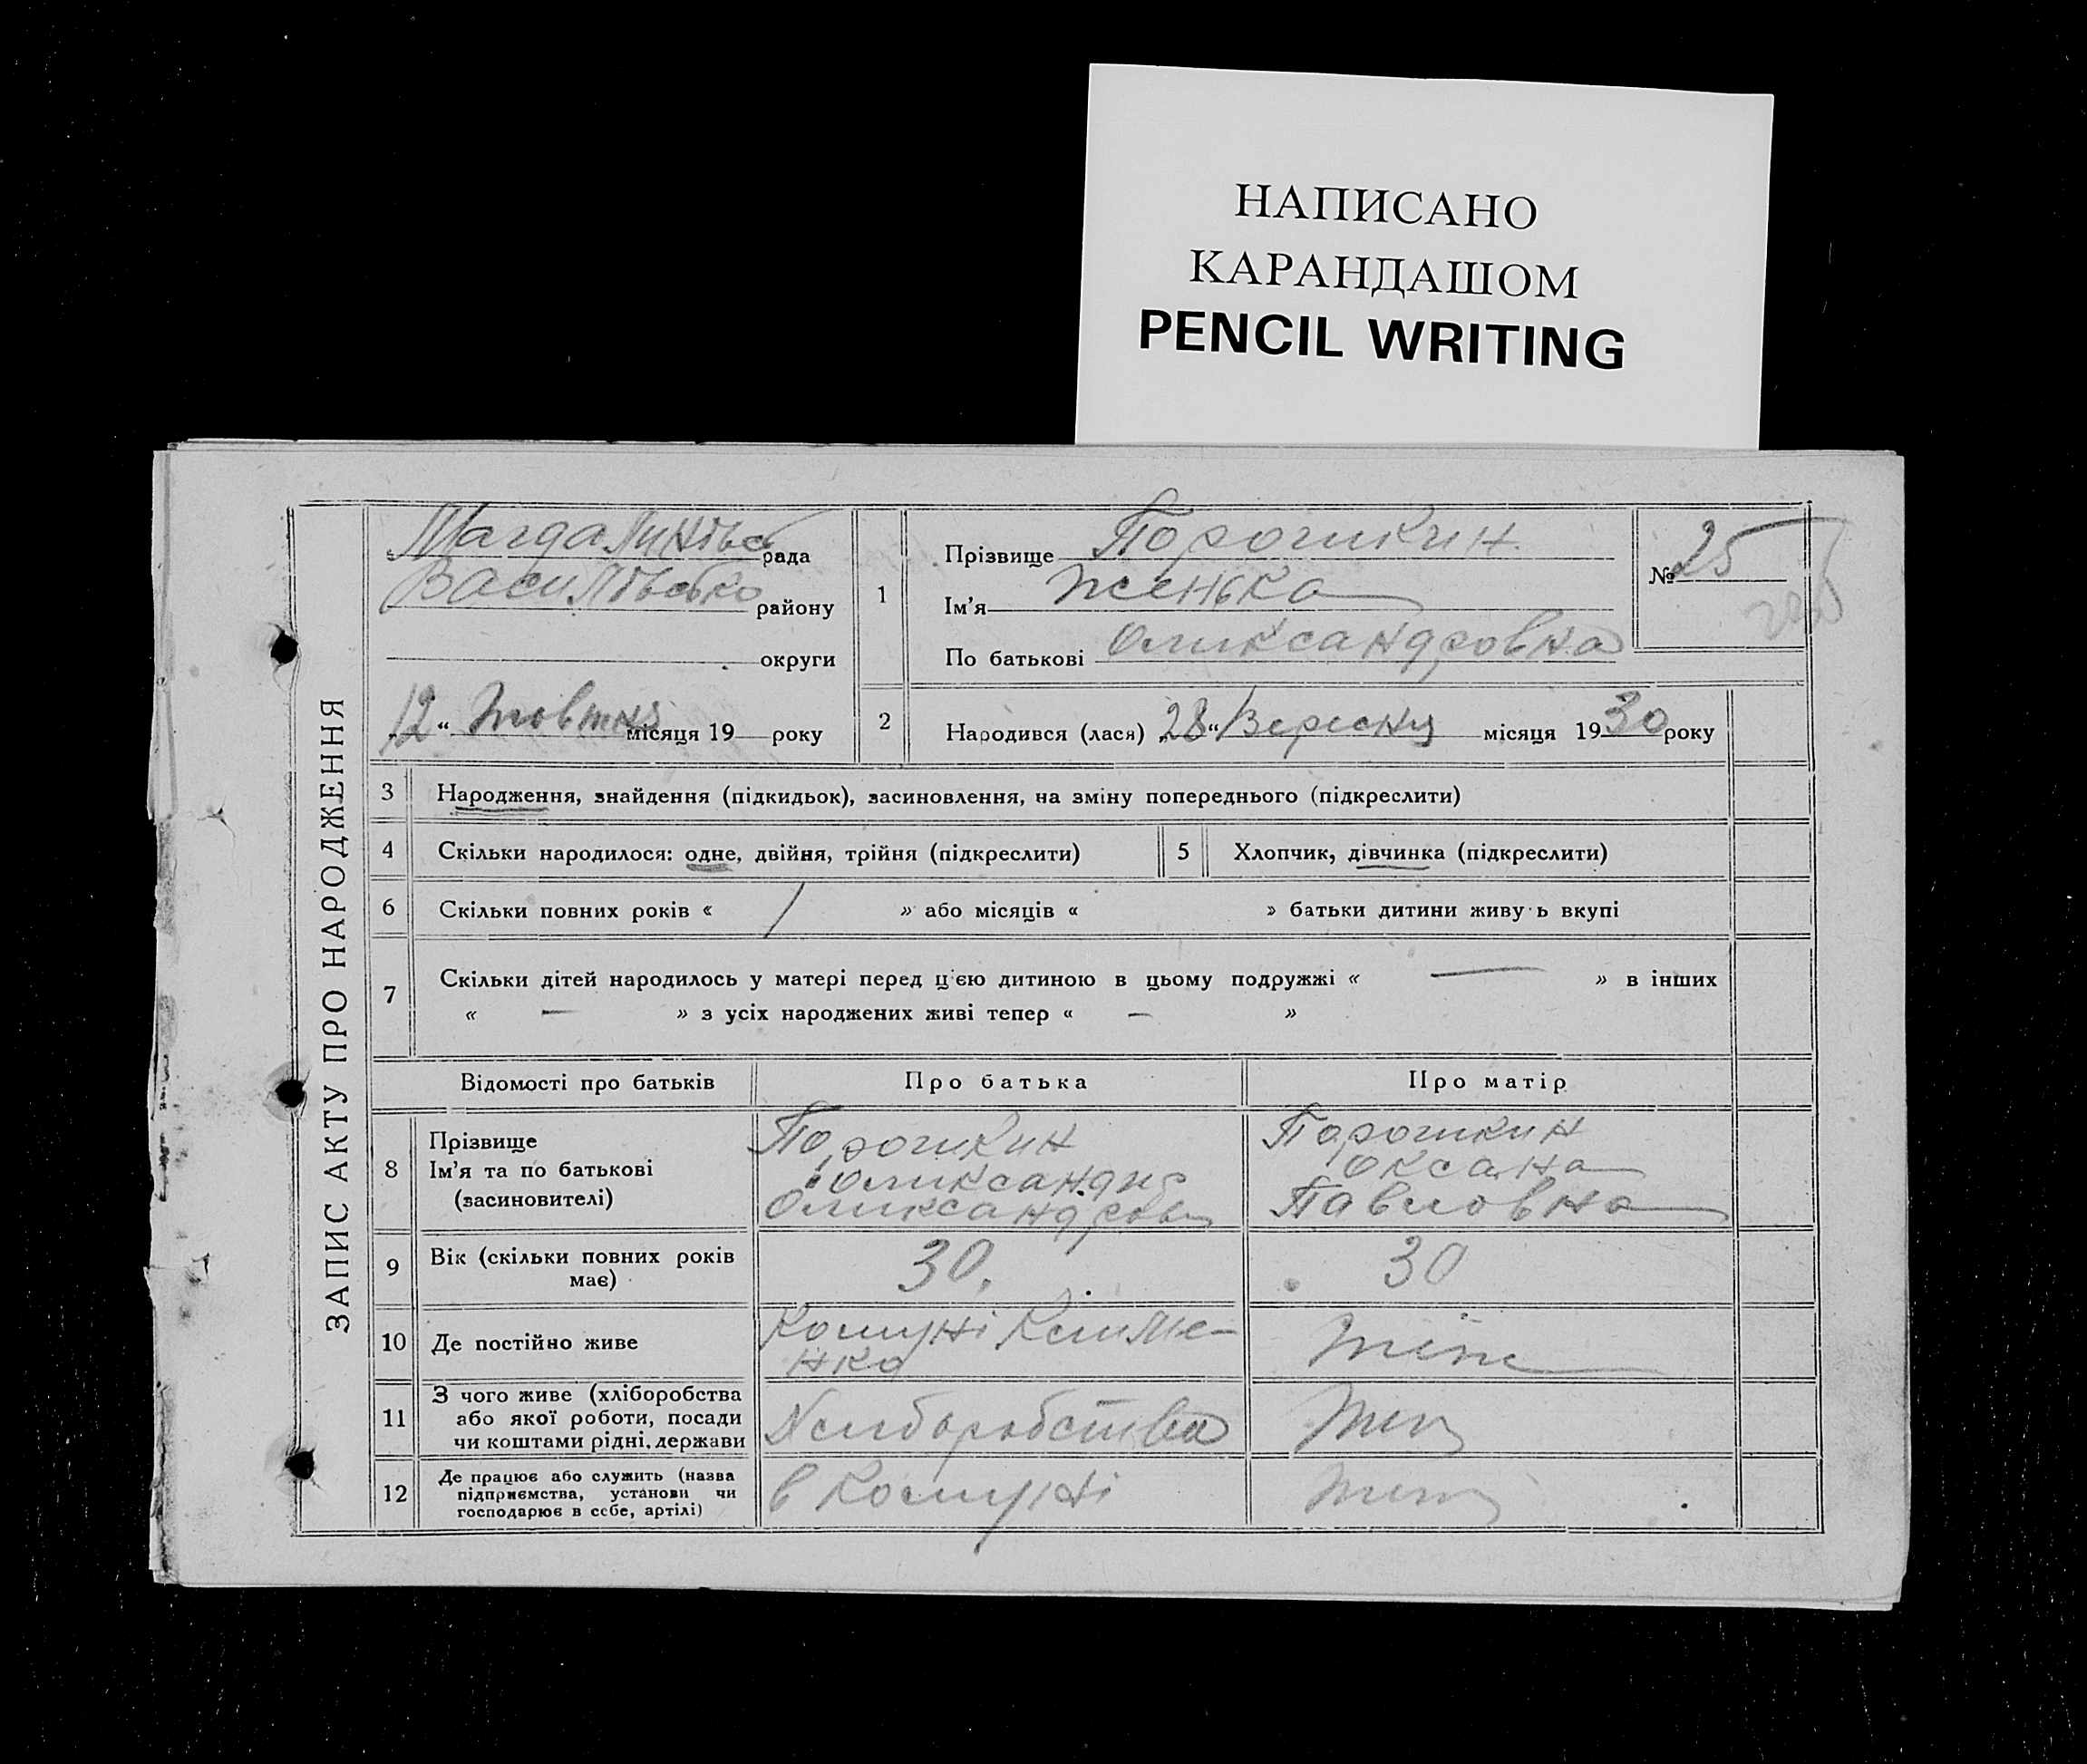 НАПИСАНО
КАРАНДАШОМ
PENCIL WRITING
ЗАПИС АКТУ ПРО НАРОДЖЕННЯ
Магдалинівс рада
Василівсько району
округи
12 “ Жовтня місяця 19 року
1
Прізвище Порошкин
Ім’я Женька
По батькові Олиександровна
№ 25
2 Народився (лася) „28“ Вересня місяця 1930 року
3 Народження, знайдення (підкидьок), засиновлення, на зміну попереднього (підкреслити)
4 Скільки народилося: одне, двійня, трійня (підкреслити) 5 Хлопчик, дівчинка (підкреслити)
6 Скільки повних років « / » або місяців « » батьки дитини живу ь вкупі
7 Скільки дітей народилось у матері перед ц’єю дитиною в цьому подружжі « — » в інших
« — » з усіх народжених живі тепер « — »
Відомості про батьків Про батька Про матір
8 Прізвище
Ім’я та по батькові
(засиновителі)
Порошкин
Порошкин
Оксана
Павловна
9 Вік (скільки повних років
має)
30.
30
10 Де постійно живе
Комуні Климе-
нка
11 З чого живе (хліборобства
або якої роботи, посади
чи коштами рідні, держави
Хлиборобства
12 Де працює або служить (назва
підприємства, установи чи
господарює в себе, артілі)
в Комуні